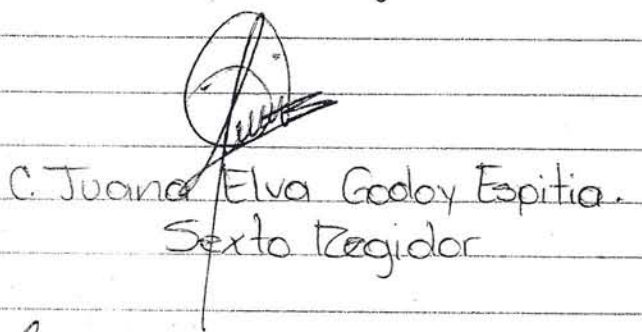 C. Juana Elva Godoy Espitia.
Sexto Regidor